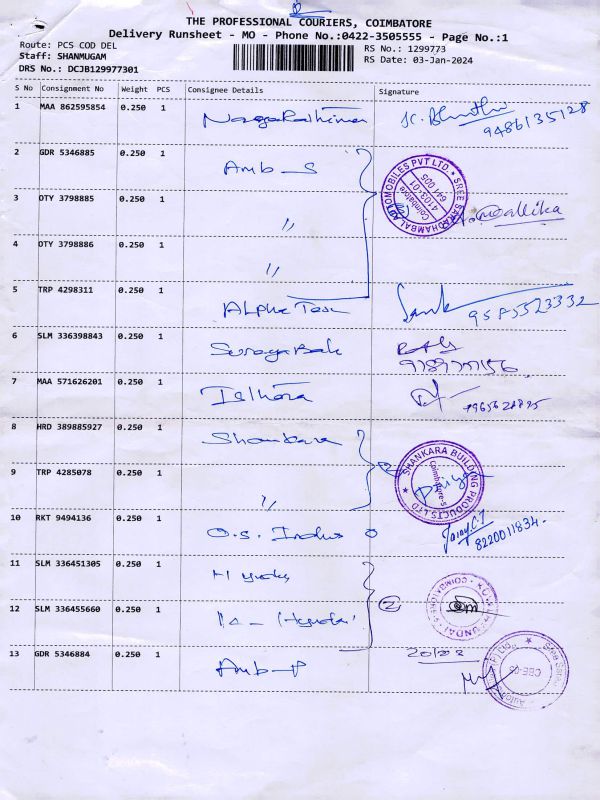 THE PROFESSIONAL COURIERS, COIMBATORE
Delivery Runsheet - MO - Phone No.:0422-3505555 - Page No.:1
Route: PCS COD DEL
Staff: SHANMUGAM
DRS No.: DCJB129977301
RS No.: 1299773
RS Date: 03-Jan-2024
S No Consignment No Weight PCS Consignee Details Signature
1 MAA 862595854 0.250 1
9486135128
2 GDR 5346885 0.250 1 Amb - S
SREE SARADHAMBAL AUTOMOBILES PVT LTD
4103-01
Coimbatore
641 005
3 DTY 3798885 0.250 1 〃
Mallika
4 DTY 3798886 0.250 1 〃
5 TRP 4298311 0.250 1 Alpha
9585523332
6 SLM 336398843 0.250 1
7 MAA 571626201 0.250 1
8 HRD 389885927 0.250 1 Shankara
② SHANKARA BUILDING PRODUCTS LTD
Coimbatore-5
Priya
9 TRP 4285078 0.250 1 〃
10 RKT 9494136 0.250 1 O.S. Indus
8220011834
11 SLM 336451305 0.250 1
HYUNDAI
COIMBATORE
12 SLM 336455660 0.250 1
②
13 GDR 5346884 0.250 1 Amb - P
CBE-05